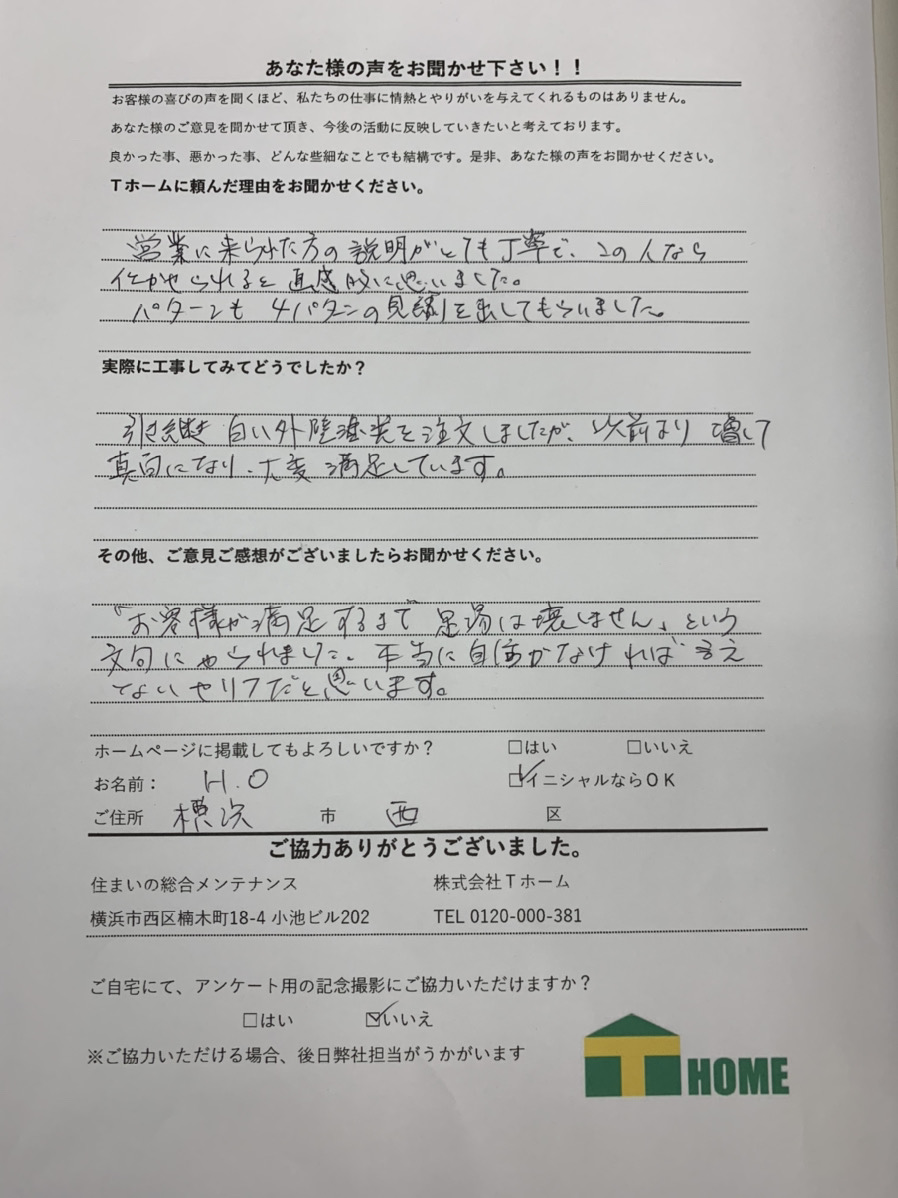 あなた様の声をお聞かせ下さい！！
お客様の喜びの声を聞くほど、私たちの仕事に情熱とやりがいを与えてくれるものはありません。
あなた様のご意見を聞かせて頂き、今後の活動に反映していきたいと考えております。
良かった事、悪かった事、どんな些細なことでも結構です。是非、あなた様の声をお聞かせください。
Ｔホームに頼んだ理由をお聞かせください。
営業に来られた方の説明がとても丁寧で、この人なら
任かせられると直感的に思いました。
パターンも 4パタンの見積りを出してもらいました。
実際に工事してみてどうでしたか？
引き継き 白い外壁塗装を注文しましたが、以前より増して
真白になり、大変満足しています。
その他、ご意見ご感想がございましたらお聞かせください。
「お客様が満足するまで 足場は壊しません」という
文句にやられました。本当に自信がなければ言え
てないセリフだと思います。
ホームページに掲載してもよろしいですか？ □はい □いいえ
お名前： H.O ☑イニシャルならＯＫ
ご住所 横浜 市 西 区
ご協力ありがとうございました。
住まいの総合メンテナンス 株式会社Ｔホーム
横浜市西区楠木町18-4 小池ビル202 TEL 0120-000-381
ご自宅にて、アンケート用の記念撮影にご協力いただけますか？
□はい ☑いいえ
※ご協力いただける場合、後日弊社担当がうかがいます
T HOME